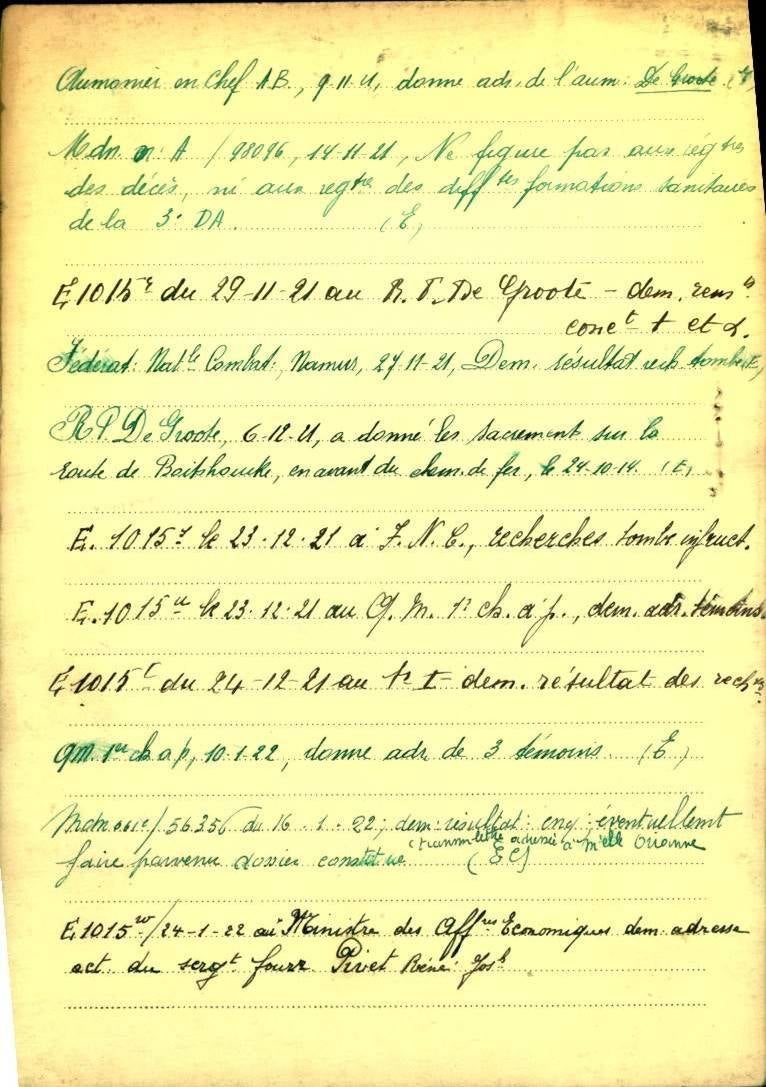 Aumonier en Chef AB., 9-11-21, donne adr. de l'aum. De Groote. (E)
Mdn. A /98096, 14-11-21, Ne figure pas aux régtres
des décès, ni aux regtres des difftes formations sanitaires
de la 3e DA. (E)
E 1015r du 29-11-21 au R. P. De Groote – dem. rensts
conct † et
Fédérat. Natle Combat., Namur, 27-11-21, Dem. résultat rech. tombe (E)
R P De Groote, 6-12-21, a donné les sacrement sur la
route de Boitshoucke, en avant du chem. de fer, le 24-10-14. (E)
E. 1015 le 23-12-21 à F. N. C., recherches tombe infruct.
E. 1015u le 23-12-21 au Q. M. 1r ch. à p., dem. adr. témoins.
E 1015 du 24-12-21 au dem. résultat des rech
QM. 1er ch a p, 10-1-22, donne adr. de 3 témoins. (E)
/ 56356 du 16-1-22, dem. résultat enq. éventuellemt
transm. lettre adressée à Melle
faire parvenir dossier constitué (EC)
E 1015w/ 24-1-22 au Ministre des Affres Economiques dem. adresse
act. du sergt fourr Pivet René Josh